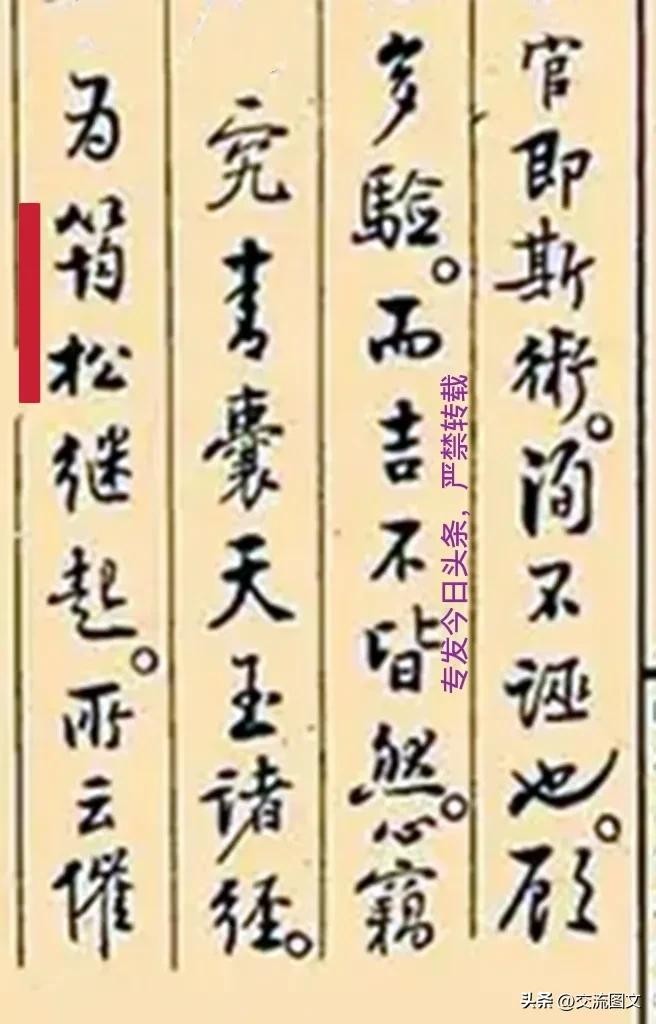 官即斯術。洵不誣也。顾
多驗。而吉不皆然。心竊
究青囊天玉诸经。
为筠松继起。所云催
专发今日头条，严禁转载
头条 @交流图文